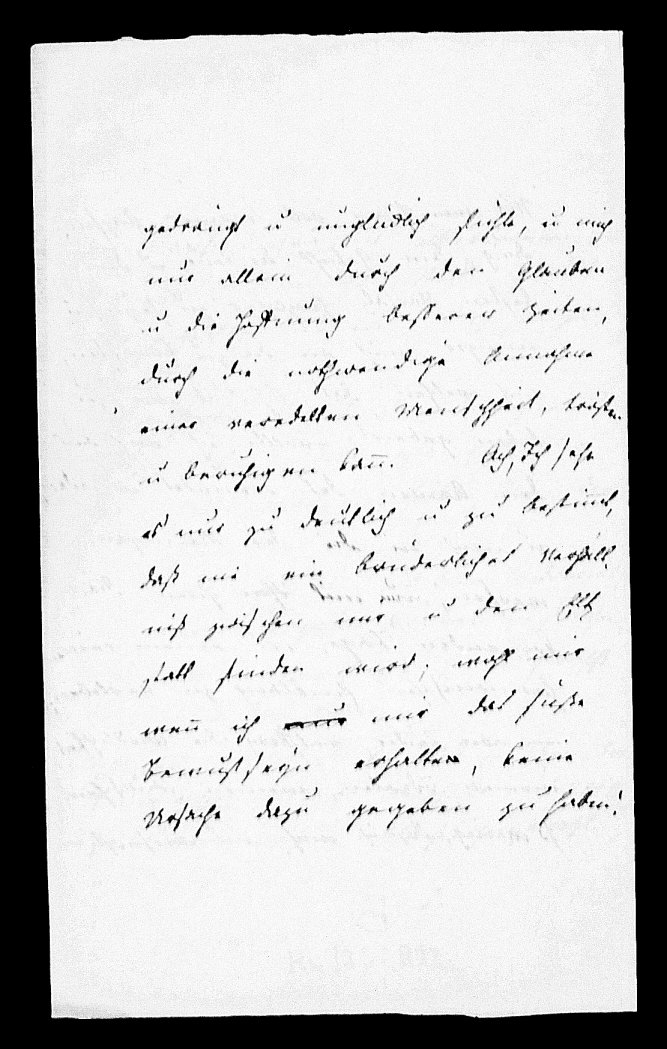 gedrängt u unglücklich fühle, u mich
nur allein durch den Glauben
u die Hoffnung besserer Zeiten,
durch die nothwendige Annahme
einer veredelten Menschheit, trösten
u beruhigen kann. Ach, Ich sehe
es nur zu deutlich u zu bestimt,
daß nie ein brüderliches Verhält
niß zwischen mir u den
statt finden wird; wohl mir
wenn ich mir das süße
Bewustseyn erhalte, keine
Ursache dazu gegeben zu haben!